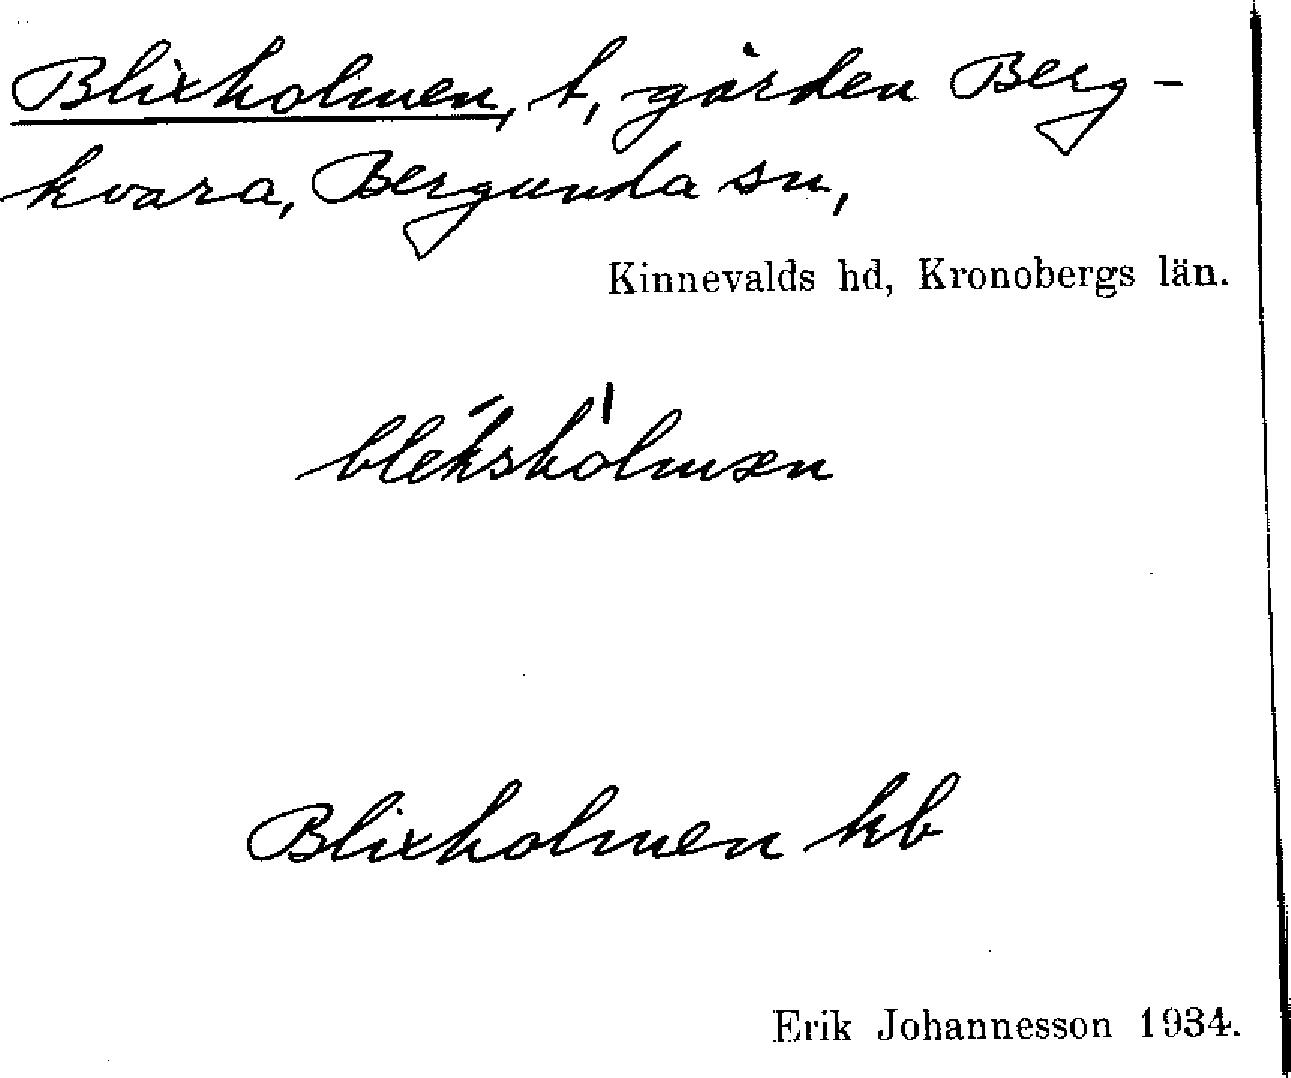 Blixholmen, t, gården Berg-
kvara, Bergunda sn,
Kinnevalds hd, Kronobergs län.
blékshòlmæn
Blixholmen kb
Erik Johannesson 1934.